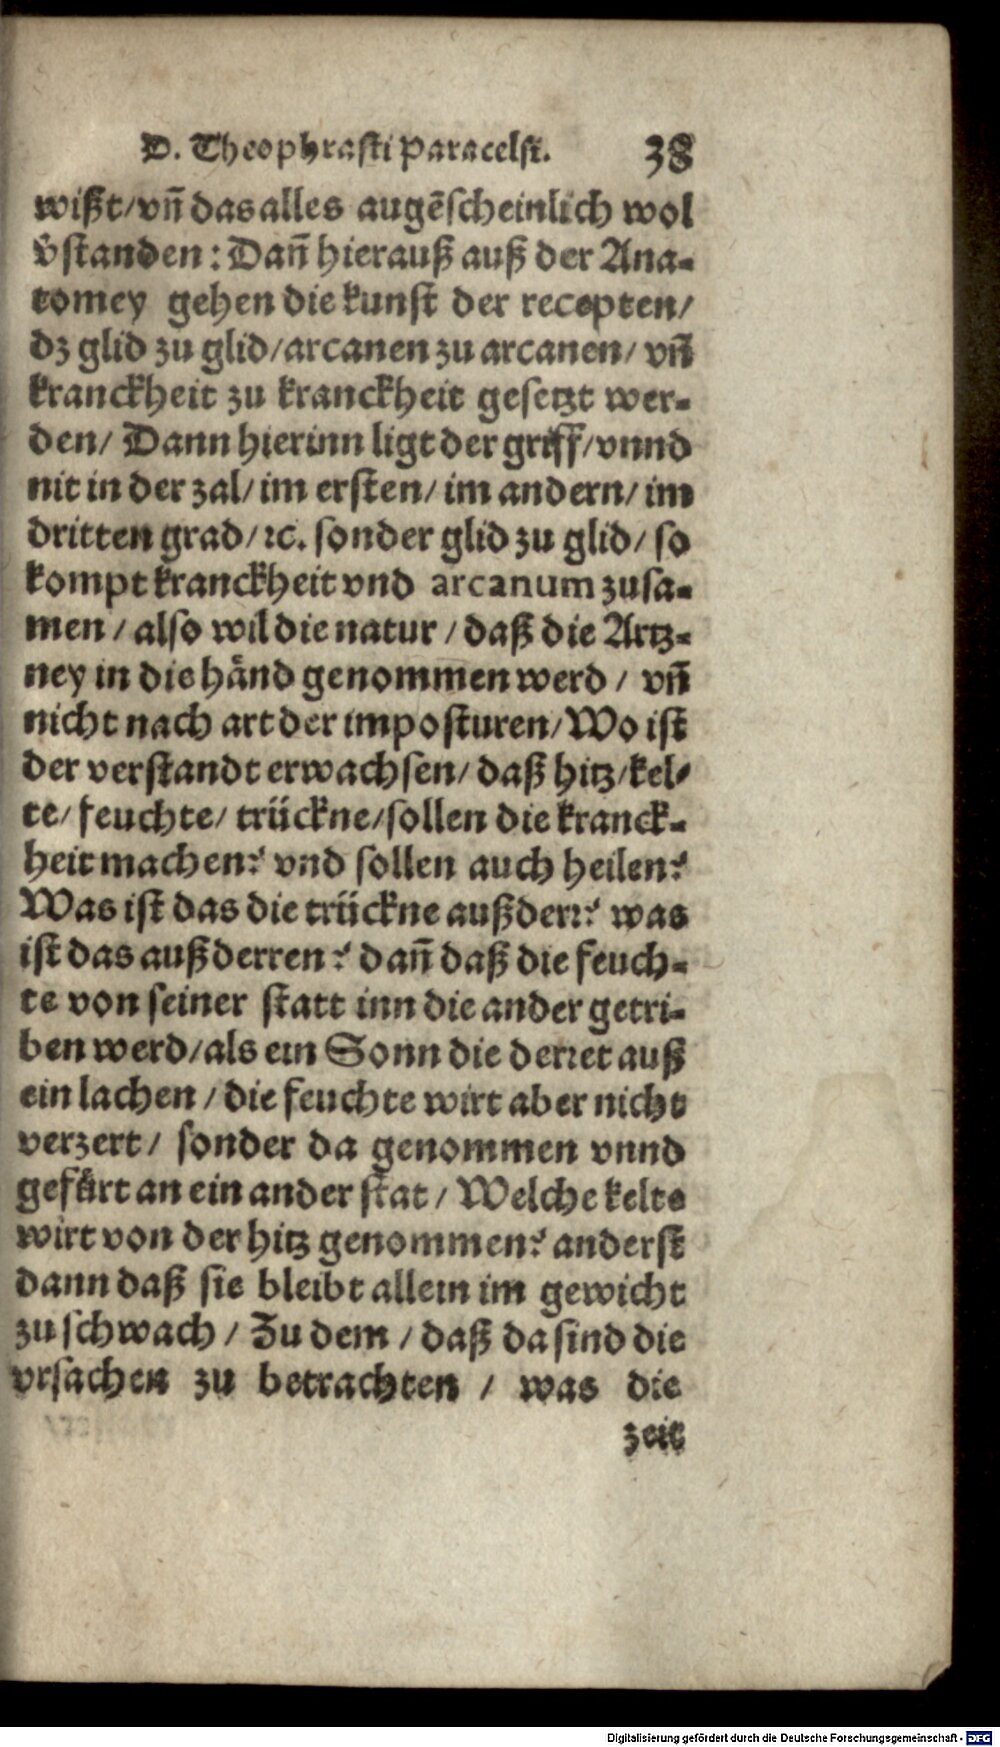 D. Theophrasti Paracelsi. 38
wißt/vñ das alles augẽscheinlich wol
v̂standen: Dañ hierauß auß der Ana-
tomey gehen die kunst der recepten/
dz glid zu glid/arcanen zu arcanen/ vñ
kranckheit zu kranckheit gesetzt wer-
den/ Dann hierinn ligt der griff/vnnd
nit in der zal/ im ersten/ im andern/ im
dritten grad/ ꝛc. sonder glid zu glid/ so
kompt kranckheit vnd arcanum zusa-
men / also wil die natur / daß die Artz-
ney in die händ genommen werd / vñ
nicht nach art der imposturen/Wo ist
der verstandt erwachsen/ daß hitz/kel-
te/ feuchte/ trückne/sollen die kranck-
heit machen? vnd sollen auch heilen?
Was ist das die trückne außderr? was
ist das außderren? dañ daß die feuch-
te von seiner statt inn die ander getri-
ben werd/als ein Sonn die derret auß
ein lachen / die feuchte wirt aber nicht
verzert/ sonder da genommen vnnd
gefürt an ein ander stat / Welche kelte
wirt von der hitz genommen? anderst
dann daß sie bleibt allein im gewicht
zu schwach / Zu dem / daß da sind die
vrsachen zu betrachten / was die
zeit
Digitalisierung gefördert durch die Deutsche Forschungsgemeinschaft - DFG